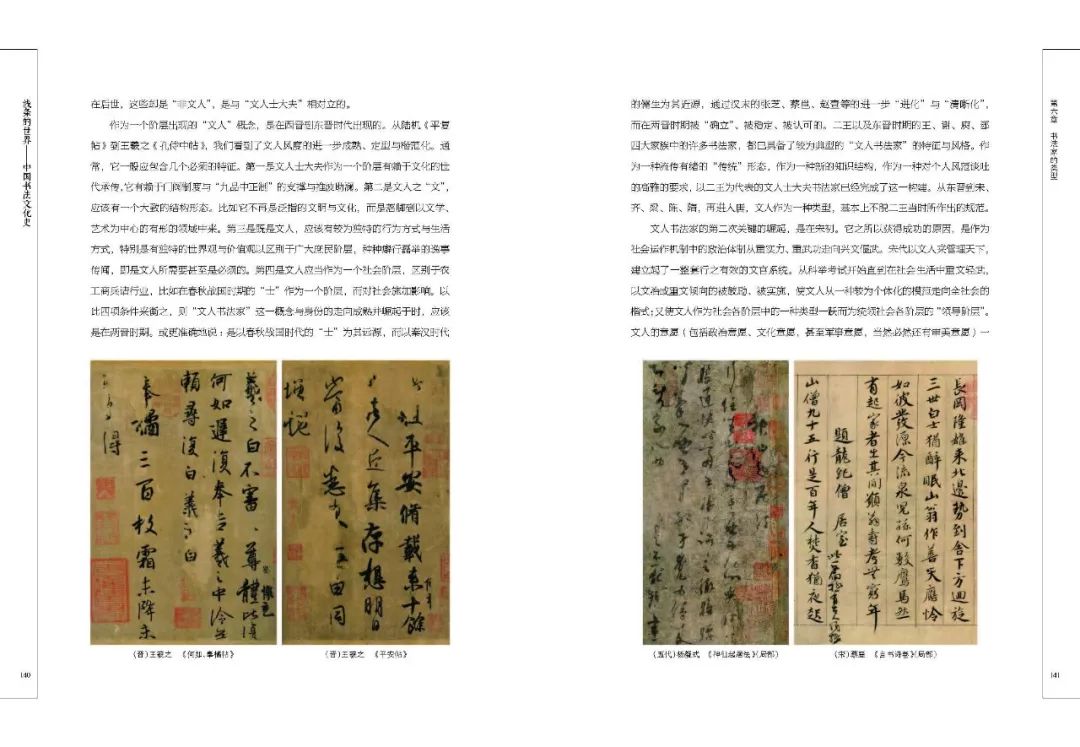 线条的世界——中国书法文化史
在后世，这些却是“非文人”，是与“文人士大夫”相对立的。
作为一个阶层出现的“文人”概念，是在西晋到东晋时代出现的。从陆机《平复
帖》到王羲之《孔侍中帖》，我们看到了文人风度的进一步成熟、定型与楷范化。通
常，它一般应包含几个必须的特征。第一是文人士大夫作为一个阶层有赖于文化的世
代承传，它有赖于门阀制度与“九品中正制”的支撑与推波助澜。第二是文人之“文”，
应该有一个大致的结构形态。比如它不再是泛指的文明与文化，而是落脚到以文学、
艺术为中心的有形的领域中来。第三是既是文人，应该有较为独特的行为方式与生活
方式，特别是有独特的世界观与价值观以区别于广大庶民阶层，种种癖行嚣举的逸事
传闻，即是文人所需要甚至是必须的。第四是文人应当作为一个社会阶层，区别于农
工商兵诸行业，比如在春秋战国时期的“士”作为一个阶层，而对社会施加影响。以
此四项条件来衡之，则“文人书法家”这一概念与身份的走向成熟并崛起于时，应该
是在两晋时期。或更准确地说：是以春秋战国时代的“士”为其远源，而以秦汉时代
羲之白不审尊體比復
何如遲復奉告羲之中冷無
賴尋復白羲之白
奉橘三百枚霜未降未
可多得
此粗平安脩載来十餘
諸人近集存想明日
當復悉来無由同
增慨
（晋）王羲之　《何如、奉橘帖》
（晋）王羲之　《平安帖》
140
第六章　书法家的类型
的儒生为其近源，通过汉末的张芝、蔡邕、赵壹等的进一步“进化”与“清晰化”，
而在两晋时期被“确立”、被稳定、被认可的。二王以及东晋时期的王、谢、庾、郗
四大家族中的许多书法家，都已具备了较为典型的“文人书法家”的特征与风格。作
为一种流传有绪的“传统”形态，作为一种新的知识结构，作为一种对个人风范谈吐
的高雅的要求，以二王为代表的文人士大夫书法家已经完成了这一构建。从东晋到宋、
齐、梁、陈、隋，再进入唐，文人作为一种类型，基本上不脱二王当时所作出的规范。
文人书法家的第二次关键的崛起，是在宋朝。它之所以获得成功的原因，是作为
社会运作机制中的政治体制从重实力、重武功走向兴文偃武。宋代以文人来管理天下，
建立起了一整套行之有效的文官系统。从科举考试开始直到在社会生活中重文轻武，
以文治或重文倾向的被鼓励、被实施，使文人从一种较为个体化的模范走向全社会的
楷式；又使文人作为社会各阶层中的一种类型一跃而为统领社会各阶层的“领导阶层”。
文人的意愿（包括政治意愿、文化意愿，甚至军事意愿，当然必然还有审美意愿）一
長岡隆雄来北邊勢到舍下方迴旋
三世白士猶醉眠山翁作善天應憐
如彼發源今流泉兒孫何數鷹馬然
有起家者生其間願翁壽考無窮年
題龍紀僧居室
此一篇極有古人風格
山僧九十五行是百年人焚香猶夜起
（五代）杨凝式　《神仙起居法》（局部）
（宋）蔡襄　《自书诗卷》（局部）
141